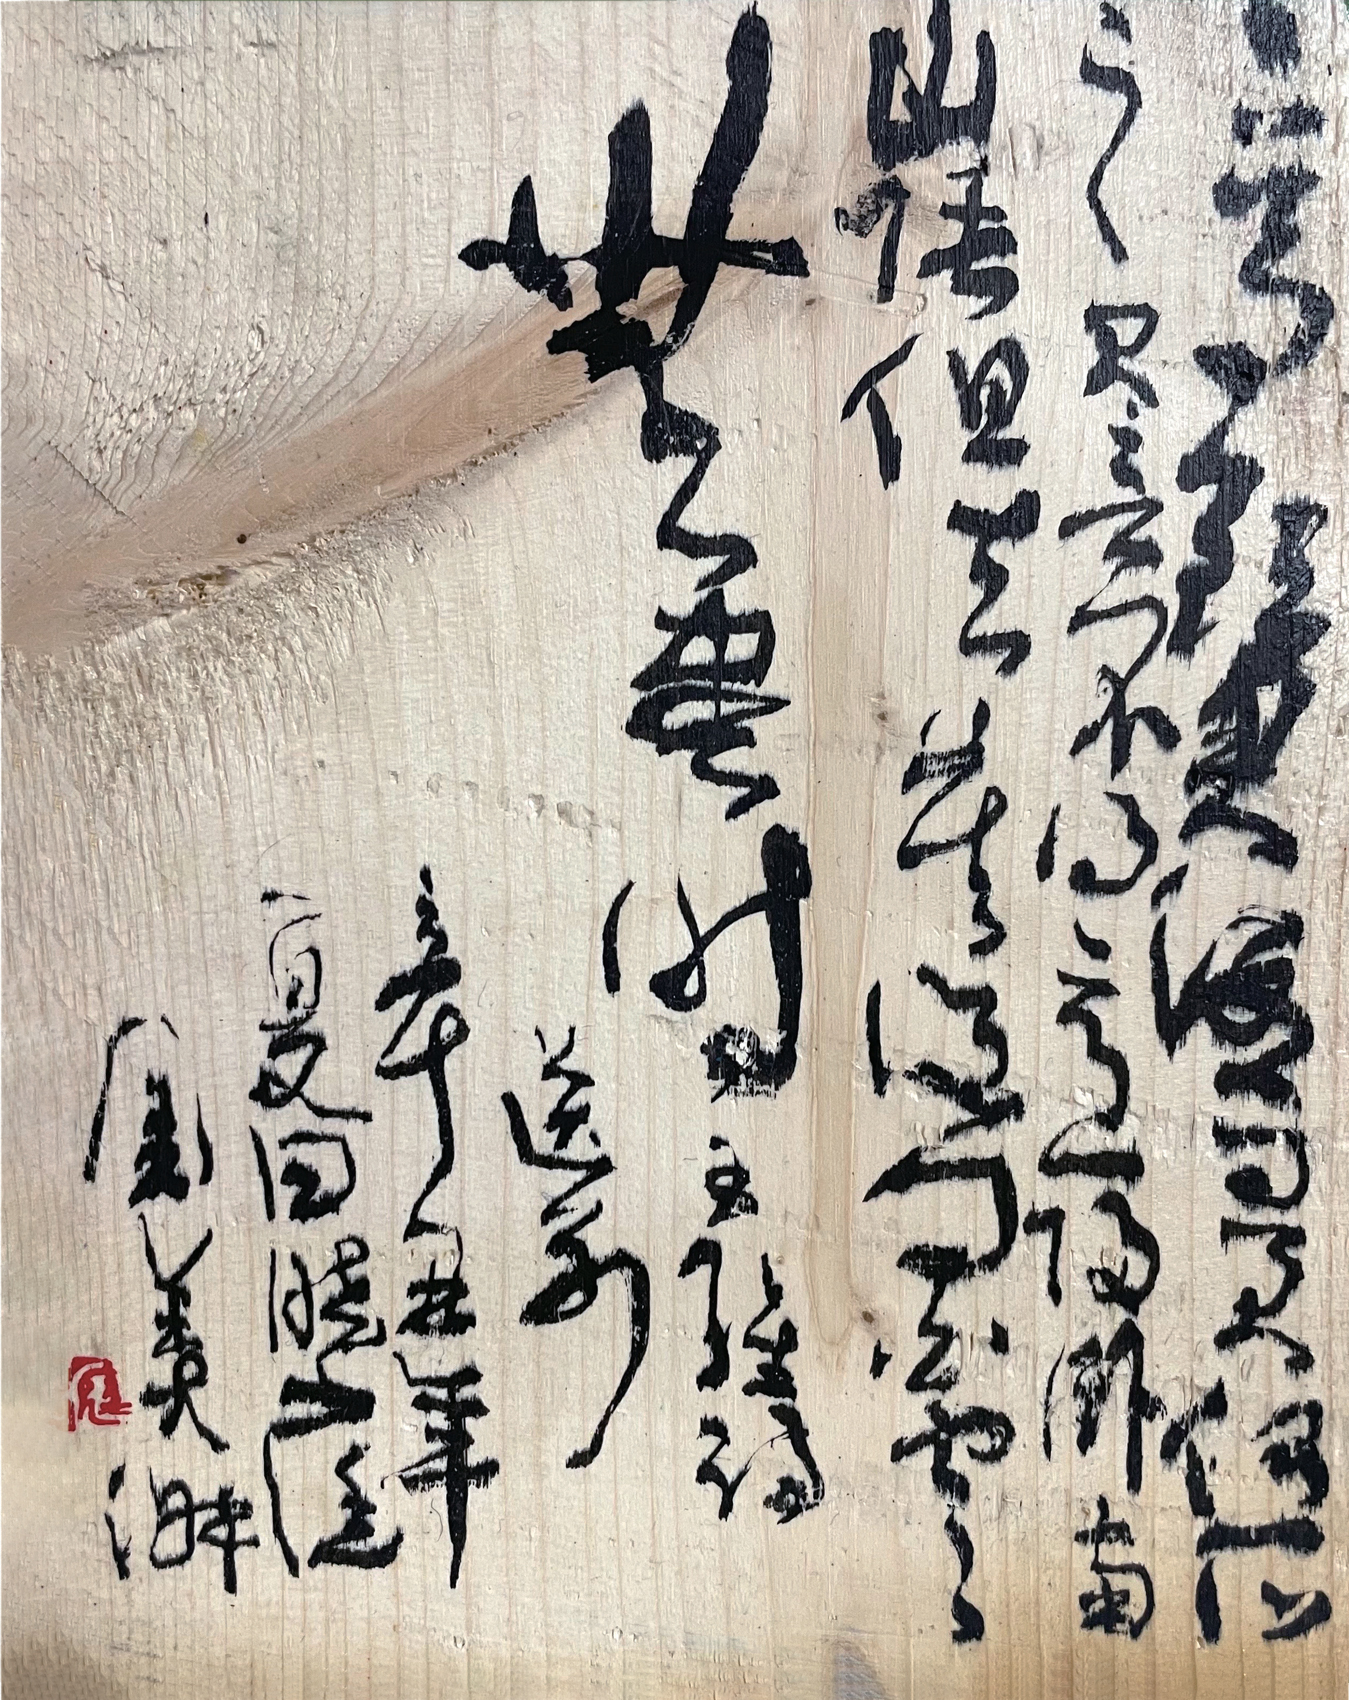 下馬飲君酒問君何所
之君言不得意歸臥南
山陲但去莫復問白雲
無盡時王維詩
送别
辛丑年
夏日